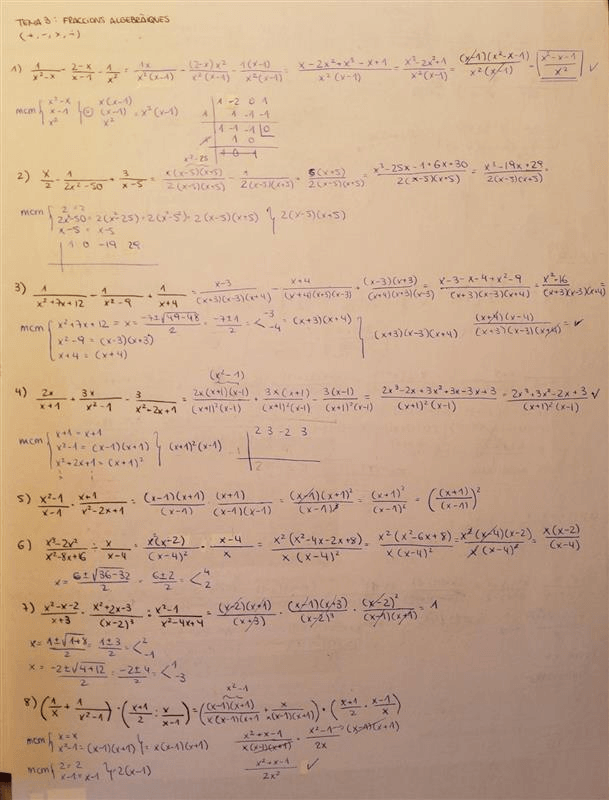 TEMA 3: FRACCIONS ALGEBRÀIQUES
(+, -, ×, ÷)
1) 1/(x²-x) - (2-x)/(x-1) - 1/x² = 1x/(x²(x-1)) - (2-x)x²/(x²(x-1)) - 1(x-1)/(x²(x-1)) = (x-2x²+x³-x+1)/(x²(x-1)) = (x³-2x²+1)/(x²(x-1)) = (x-1)(x²-x-1)/(x²(x-1)) = (x²-x-1)/x² ✓
mcm { x²-x x(x-1)
x-1 (x-1) = x²(x-1)
x² x²
1 -2 0 1
1 1 -1 -1
1 -1 -1 0
1 0
x²-25
2) x/2 - 1/(2x²-50) + 3/(x-5) = x(x-5)(x+5)/(2(x-5)(x+5)) - 1/(2(x-5)(x+5)) = 6(x+5)/(2(x-5)(x+5)) = (x³-25x-1+6x+30)/(2(x-5)(x+5)) = (x³-19x+29)/(2(x-5)(x+5)) =
mcm { 2 = 2
2x²-50 = 2(x²-25) = 2(x²-5²) = 2(x-5)(x+5) } 2(x-5)(x+5)
x-5 = x-5
1 0 -19 29
3) 1/(x²+7x+12) - 1/(x²-9) + 1/(x+4) = (x-3)/((x+3)(x-3)(x+4)) - (x+4)/((x+4)(x+3)(x-3)) + (x-3)(x+3)/((x+4)(x+3)(x-3)) = (x-3-x-4+x²-9)/((x+3)(x-3)(x+4)) = (x²-16)/((x+3)(x-3)(x+4)) =
mcm { x²+7x+12 = x = (-7±√49-48)/2 = (-7±1)/2 = < -3 -4 = (x+3)(x+4)
x²-9 = (x-3)(x+3) } (x+3)(x-3)(x+4) (x+4)(x-4)/((x+3)(x-3)(x+4)) = ✓
x+4 = (x+4)
(x²-1)
4) 2x/(x+1) + 3x/(x²-1) - 3/(x²+2x+1) = 2x(x+1)(x-1)/((x+1)²(x-1)) + 3x(x+1)/((x+1)²(x-1)) - 3(x-1)/((x+1)²(x-1)) = (2x³-2x+3x²+3x-3x+3)/((x+1)²(x-1)) = (2x³+3x²-2x+3)/((x+1)²(x-1)) ✓
mcm { x+1 = x+1
x²-1 = (x-1)(x+1) } (x+1)²(x-1)
x²+2x+1 = (x+1)²
2 3 -2 3
2
5) (x²-1)/(x-1) · (x+1)/(x²-2x+1) = (x-1)(x+1)/(x-1) · (x+1)/((x-1)(x-1)) = (x-1)(x+1)²/(x-1)³ = (x+1)²/(x-1)² = ((x+1)/(x-1))²
6) (x³-2x²)/(x²-8x+16) ÷ x/(x-4) = x²(x-2)/(x-4)² · (x-4)/x = x²(x²-4x-2x+8)/(x(x-4)²) = x²(x²-6x+8)/(x(x-4)²) = x²(x-4)(x-2)/(x(x-4)²) = x(x-2)/(x-4)
x = (6±√36-32)/2 = (6±2)/2 = < 4 2
7) (x²-x-2)/(x+3) · (x²+2x-3)/(x-2)³ ÷ (x²-1)/(x²-4x+4) = (x-2)(x+1)/(x+3) · (x-1)(x+3)/(x-2)³ · (x-2)²/((x-1)(x+1)) = 1
x = (1±√1+8)/2 = (1±3)/2 = < 2 -1
x = (-2±√4+12)/2 = (-2±4)/2 = < 1 -3
x²-1
8) (1/x + 1/(x²-1)) · ((x+1)/2 ÷ x/(x-1)) = ((x-1)(x+1)/(x(x-1)(x+1)) + x/(x(x-1)(x+1))) · ((x+1)/2 · (x-1)/x)
mcm { x = x
x²-1 = (x-1)(x+1) } = x(x-1)(x+1) (x²+x-1)/(x(x-1)(x+1)) · (x²-1)/2x → (x-1)(x+1)
mcm { 2 = 2
x-1 = x-1 } 2(x-1) (x²+x-1)/2x² ✓